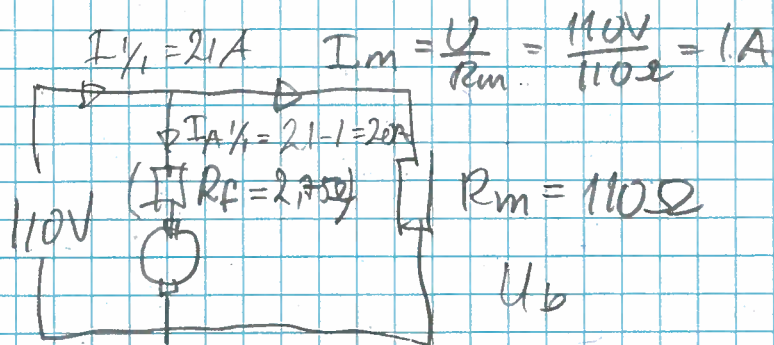 I 1/1 = 21A
Im = U/Rm = 110V/110Ω = 1A
IA 1/1 = 21-1 = 20A
(Rf = 2,75Ω)
Rm = 110Ω
110V
Ub